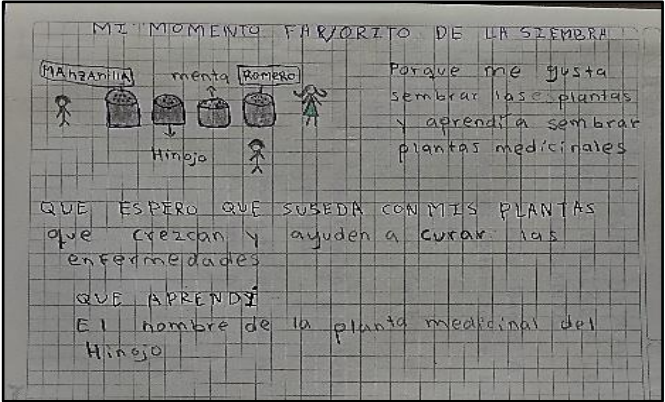 MI MOMENTO FAVORITO DE LA SIEMBRA
MAnzAnillA
menta
ROMERO
Hinojo
Porque me gusta
sembrar lase plantas
y aprendí a sembrar
plantas medicinales
QUE ESPERO QUE SUSEDA CON MIS PLANTAS
que crezcan y ayuden a curar las
enfermedades
QUE APRENDÍ
El nombre de la planta medicinal del
Hinojo